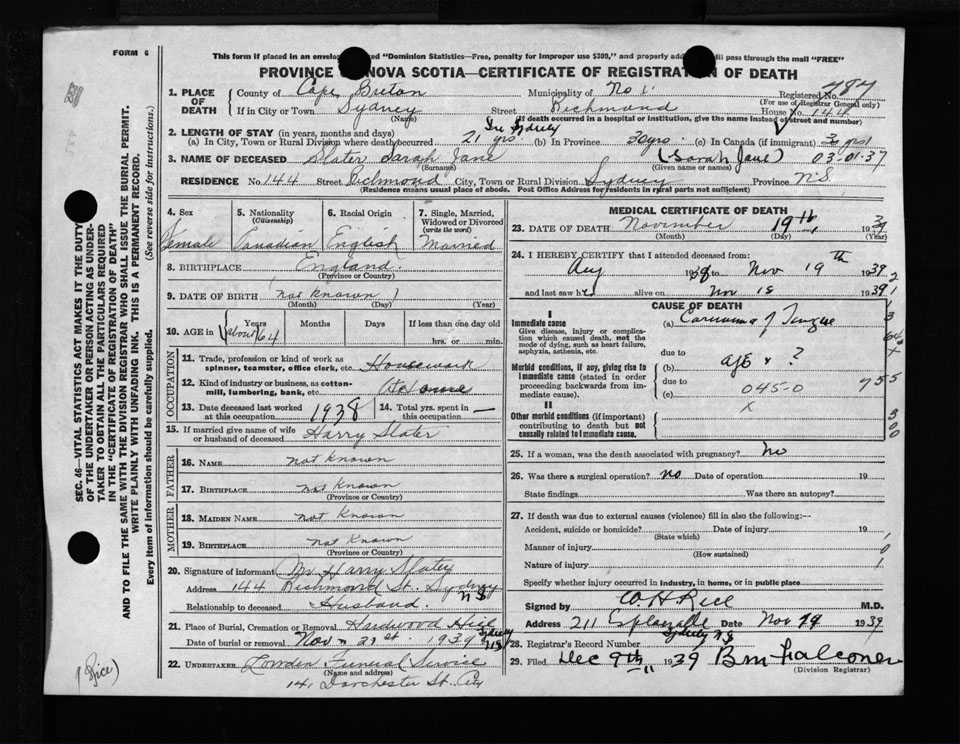 FORM 6
This form if placed in an envelope marked "Dominion Statistics—Free, penalty for improper use $300," and properly addressed will pass through the mail "FREE"
PROVINCE OF NOVA SCOTIA—CERTIFICATE OF REGISTRATION OF DEATH
Registered No. 787
(For use of Registrar General only)
1. PLACE OF DEATH
County of Cape Breton Municipality of No 1
If in City or Town Sydney Street Richmond House No. 144
(Name) (If death occurred in a hospital or institution, give the name instead of street and number)
2. LENGTH OF STAY (in years, months and days) In Sydney
(a) In City, Town or Rural Division where death occurred 21 yrs. (b) In Province 30 yrs (c) In Canada (if immigrant) 30 yrs
3. NAME OF DECEASED Slater Sarah Jane (Sarah Jane) 03-01-37
(Surname) (Given name or names)
RESIDENCE No. 144 Street Richmond City, Town or Rural Division Sydney Province N.S
(Residence means usual place of abode. Post Office Address for residents in rural parts not sufficient)
4. Sex
Female
5. Nationality
(Citizenship)
Canadian
6. Racial Origin
English
7. Single, Married, Widowed or Divorced
(write the word)
Married
8. BIRTHPLACE England.
(Province or Country)
9. DATE OF BIRTH (not known)
(Month) (Day) (Year)
10. AGE in Years Months Days If less than one day old
(about) 64 hrs. or min.
OCCUPATION
11. Trade, profession or kind of work as spinner, teamster, office clerk, etc. Housework
12. Kind of industry or business, as cotton-mill, lumbering, bank, etc. At Home
13. Date deceased last worked at this occupation 1938
14. Total yrs. spent in this occupation —
15. If married give name of wife or husband of deceased Harry Slater
FATHER
16. NAME not known
17. BIRTHPLACE not known
(Province or Country)
MOTHER
18. MAIDEN NAME not known
19. BIRTHPLACE not known
(Province or Country)
20. Signature of informant Mr Harry Slater
Address 144 Richmond St. Sydney N.S
Relationship to deceased Husband.
21. Place of Burial, Cremation or Removal Hardwood Hill Sydney N.S
Date of burial or removal Nov 21st. 1939
22. UNDERTAKER Lowden Funeral Service
(Name and address)
141 Dorchester St. City
MEDICAL CERTIFICATE OF DEATH
23. DATE OF DEATH November 19th, 1939
(Month) (Day) (Year)
24. I HEREBY CERTIFY that I attended deceased from:
Aug 1939 to Nov 19th 1939
and last saw h alive on Nov 18 1939
CAUSE OF DEATH
I
Immediate cause
Give disease, injury or complication which caused death, not the mode of dying, such as heart failure, asphyxia, asthenia, etc.
(a) Carcinoma of Tongue
due to
Morbid conditions, if any, giving rise to immediate cause (stated in order proceeding backwards from immediate cause).
(b) age & ?
due to
(c) 045-0 755
II
Other morbid conditions (if important) contributing to death but not causally related to immediate cause.
X
25. If a woman, was the death associated with pregnancy? No
26. Was there a surgical operation? No Date of operation 19
State findings Was there an autopsy?
27. If death was due to external causes (violence) fill in also the following:—
Accident, suicide or homicide? Date of injury 19
(State which)
Manner of injury
(How sustained)
Nature of injury
Specify whether injury occurred in industry, in home, or in public place
Signed by W. H Rice M.D.
Address 211 Esplanade Sydney N S Date Nov 19 1939
28. Registrar's Record Number
29. Filed Dec 9th 1939 B M Falconer
(Division Registrar)
SEC. 46—VITAL STATISTICS ACT MAKES IT THE DUTY
OF THE UNDERTAKER OR PERSON ACTING AS UNDERTAKER
TO OBTAIN ALL THE PARTICULARS REQUIRED
IN THE "CERTIFICATE OF REGISTRATION OF DEATH"
AND TO FILE THE SAME WITH THE DIVISION REGISTRAR WHO SHALL ISSUE THE BURIAL PERMIT.
WRITE PLAINLY WITH UNFADING INK. THIS IS A PERMANENT RECORD.
Every item of information should be carefully supplied. (See reverse side for instructions.)
(Rice)